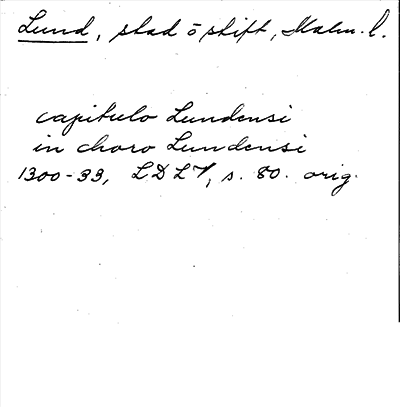 Lund, stad o stift, Malm. l.
capitulo Lundensi
in choro Lundensi
1300-33, LDLV, s. 80. orig.